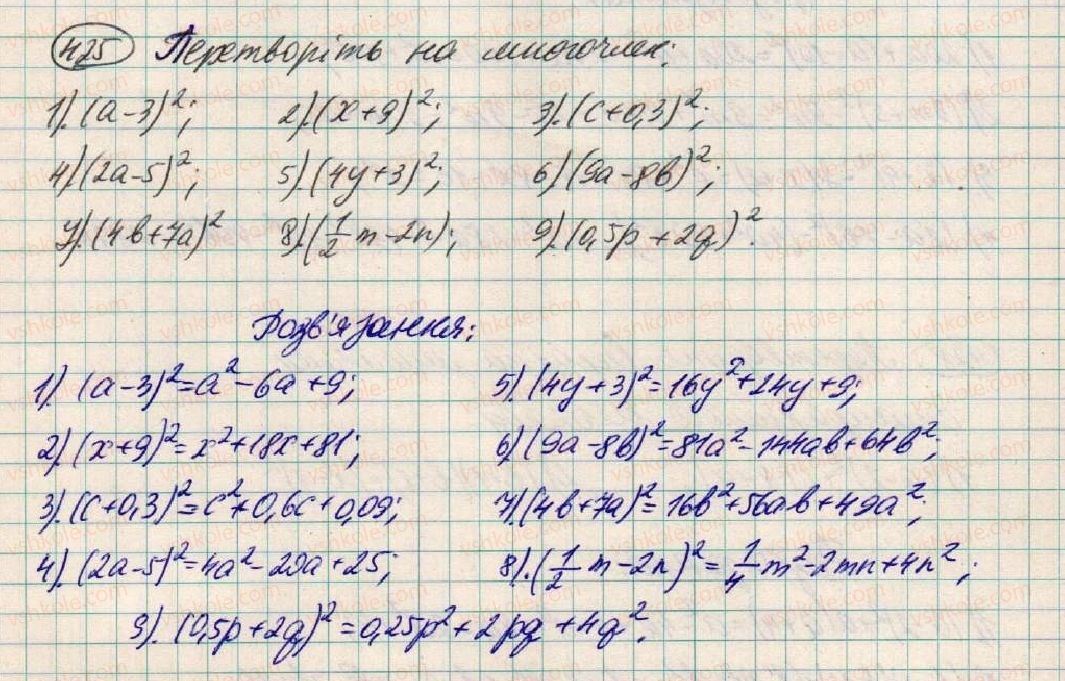 425 Перетворіть на многочлен:
1). (a-3)²; 2). (x+9)²; 3). (c+0,3)²;
4) (2a-5)²; 5). (4y+3)²; 6) (9a-8b)²;
7). (4b+7a)² 8). (1/2 m-2n); 9). (0,5p+2q)².
Розв'язання:
1). (a-3)²=a²-6a+9;
2) (x+9)²=x²+18x+81;
3). (c+0,3)²=c²+0,6c+0,09;
4). (2a-5)²=4a²-20a+25;
5). (4y+3)²=16y²+24y+9;
6) (9a-8b)²=81a²-144ab+64b²;
7). (4b+7a)²=16b²+56ab+49a²;
8). (1/2 m-2n)²=1/4 m²-2mn+4n²;
9). (0,5p+2q)²=0,25p²+2pq+4q².